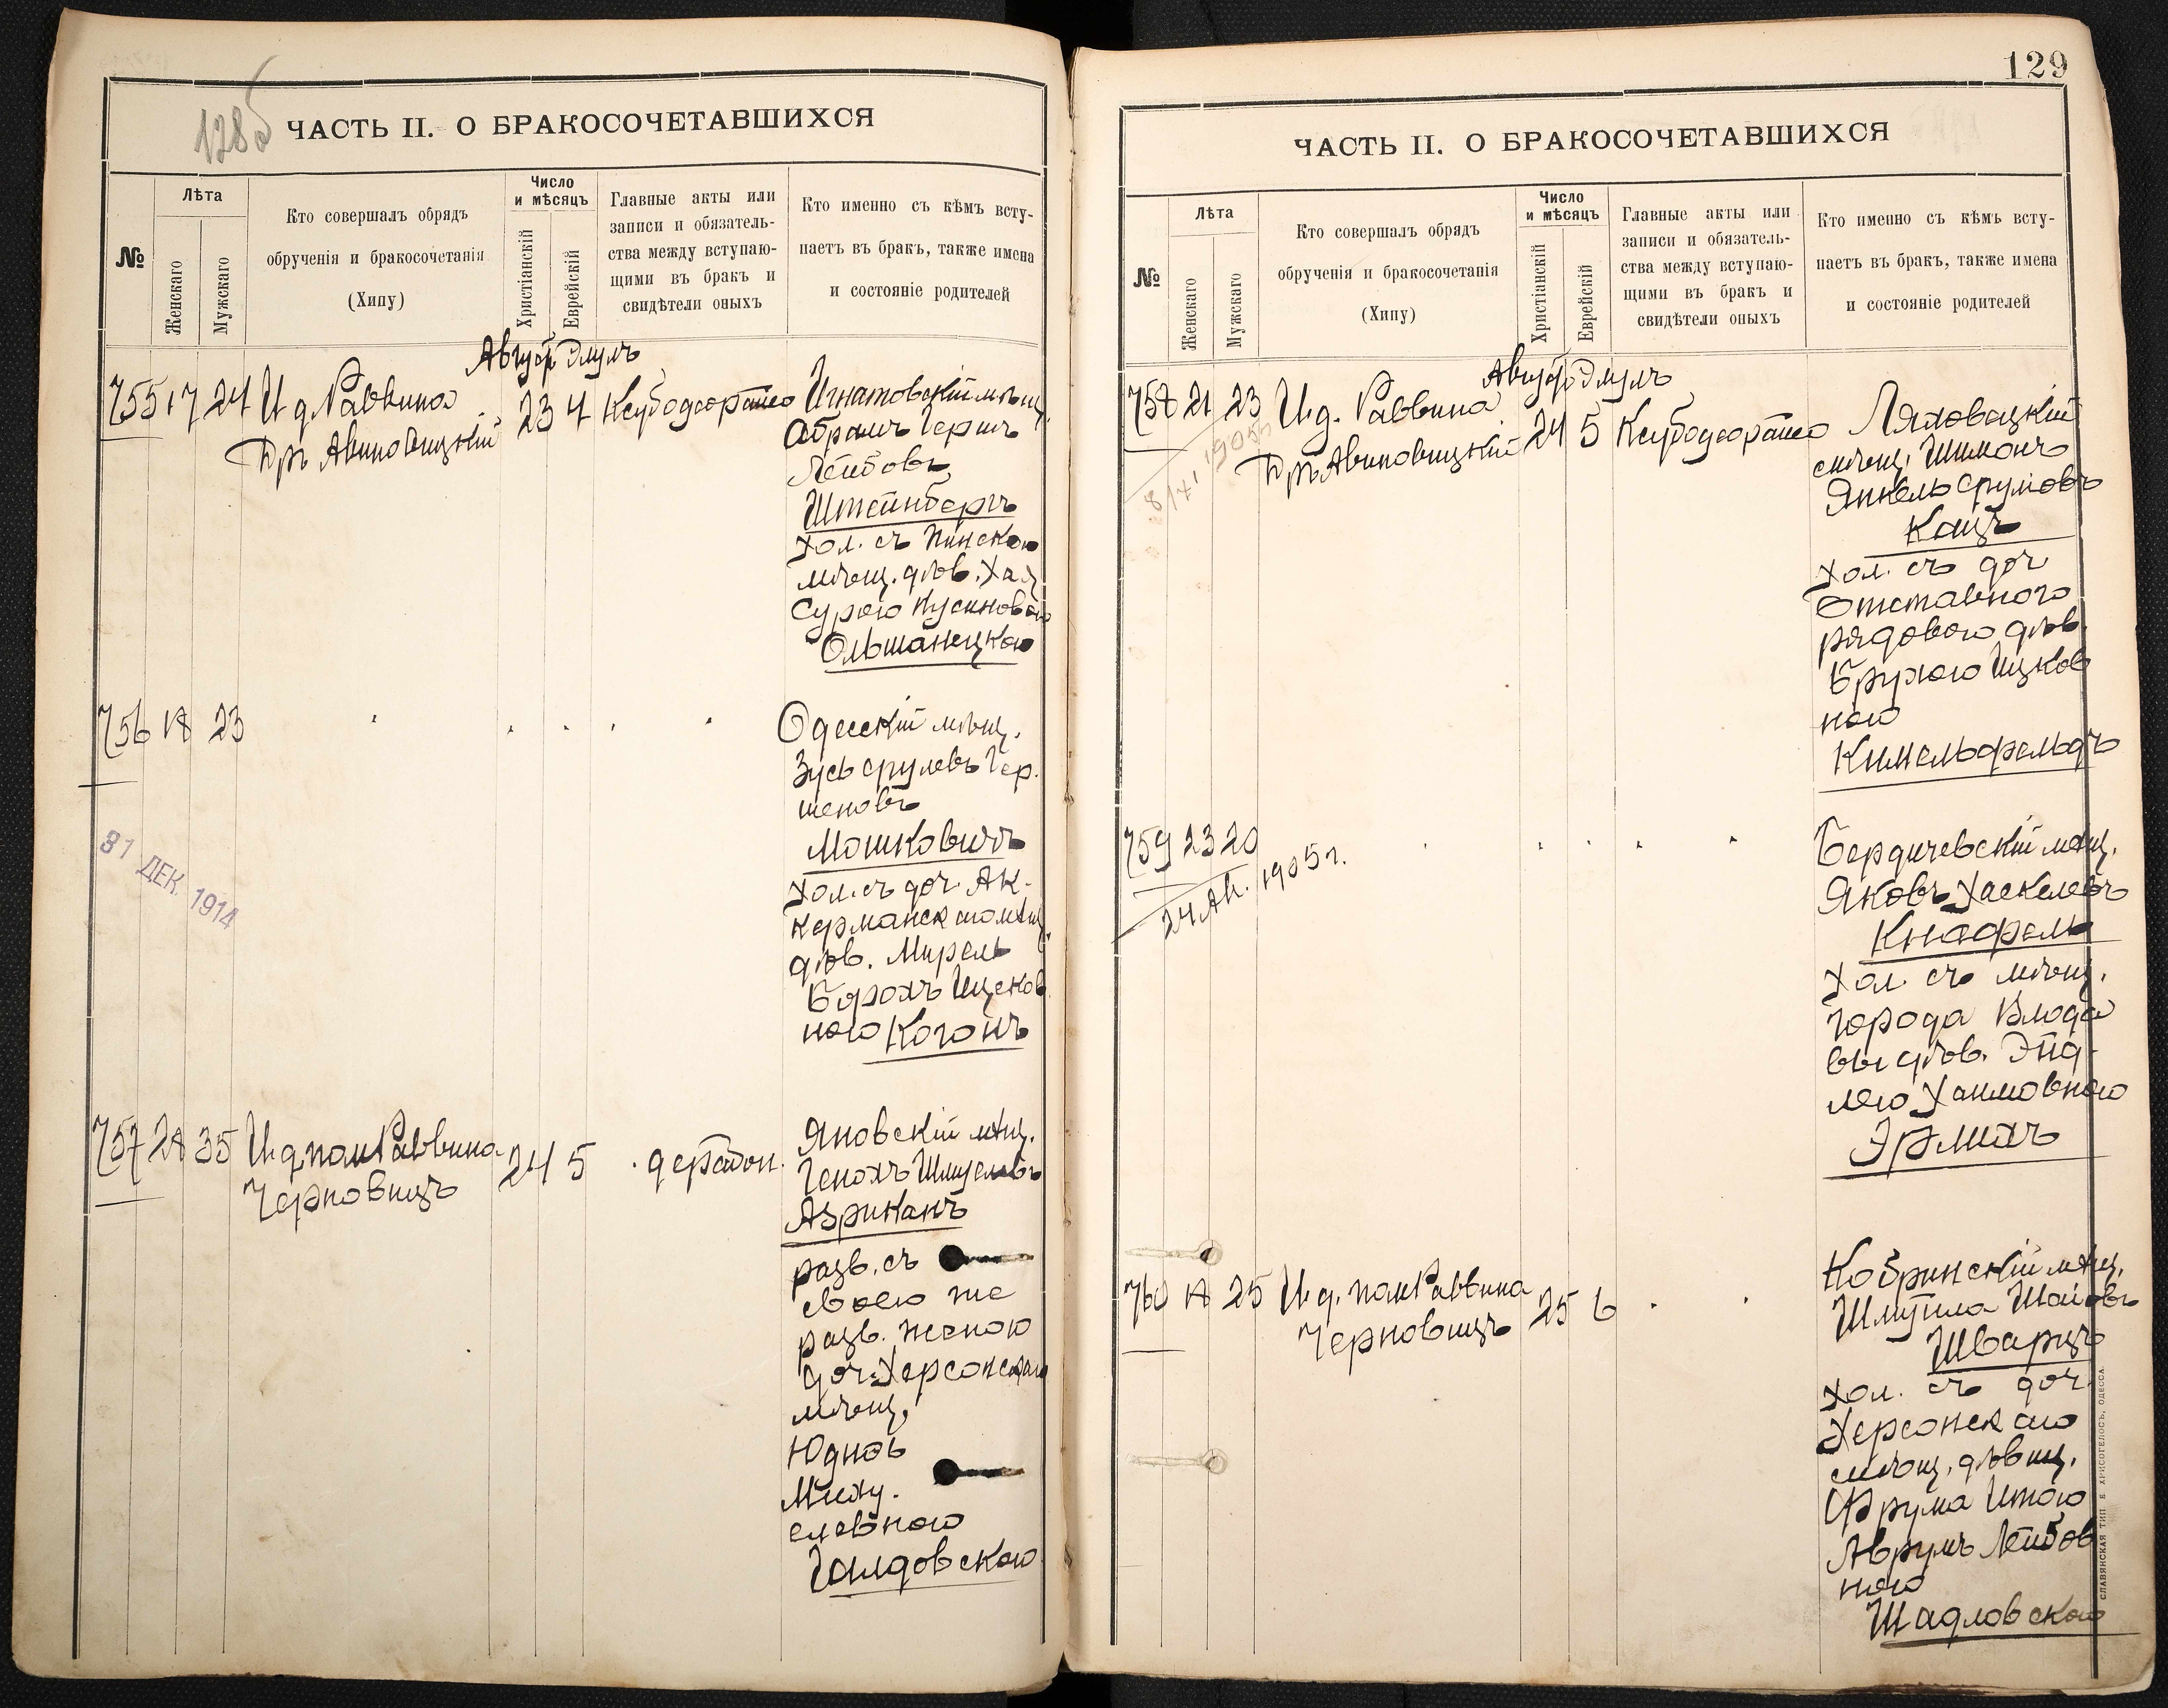 128б
ЧАСТЬ II. О БРАКОСОЧЕТАВШИХСЯ
№
Лѣта
Женскаго
Мужскаго
Кто совершалъ обрядъ
обрученія и бракосочетанія
(Хипу)
Число
и мѣсяцъ
Христіанскій
Еврейскій
Главные акты или
записи и обязатель-
ства между вступаю-
щими въ бракъ и
свидѣтели оныхъ
Кто именно съ кѣмъ всту-
паетъ въ бракъ, также имена
и состояніе родителей
Август Элулъ
755 17 24 И д Раввина 23 4
Др. Авиновицкій
Игнатовскій мѣщ.
Абрамъ Гершъ
Лейбовъ
Штейнбергъ
хол. съ Пинскою
мѣщ. дѣв. Хая
Сурою Кусиновою
Ольшанецкою
756 18 23
Одесскій мѣщ.
Зусь Срулевъ Гер-
шеновъ
Мошковичъ
хол. съ доч. Ак-
керманскаго мѣщ.
дѣв. Мирель
Борохъ Ицков
ною Коганъ
31 ДЕК. 1914
757 28 35 И.д. пом Раввина 24 5
Черновицъ
Яновскій мѣщ.
Генохъ Шмулевъ
Азриканъ
разв. съ
своею же
разв. женою
доч. Херсонскаго
мѣщ.
Юдновъ
Миху.
елевною
Галдовскою
129
ЧАСТЬ II. О БРАКОСОЧЕТАВШИХСЯ
№
Лѣта
Женскаго
Мужскаго
Кто совершалъ обрядъ
обрученія и бракосочетанія
(Хипу)
Число
и мѣсяцъ
Христіанскій
Еврейскій
Главные акты или
записи и обязатель-
ства между вступаю-
щими въ бракъ и
свидѣтели оныхъ
Кто именно съ кѣмъ всту-
паетъ въ бракъ, также имена
и состояніе родителей
Август Элулъ
758 21 23 И.д. Раввина 24 5
Др. Авиновицкій
Ляховецкій
мѣщ. Шимонъ
Янкель Срулевъ
Кацъ
хол. съ доч
Отставного
рядового дѣв.
Брухою Ицков
ною
Кимельфельдъ
759 23 20
24 Ап. 1905 г.
Бердичевскій мѣщ.
Яковъ Хаскелевъ
Кнафель
хол. съ мѣщ.
города Влода
вы дѣв. Энд-
лею Хаимовною
Эрлихъ
760 18 25 И.д. пом Раввина 25 6
Черновицъ
Кобринскій мѣщ.
Шмуила Шаевъ
Шварцъ
хол. съ доч.
Херсонскаго
мѣщ. дѣвиц.
Фрума Итою
Аврумъ Лейбов
ною
Шадловскою
СЛАВЯНСКАЯ ТИП. Е. ХРИСОГЕЛОСЪ, ОДЕССА